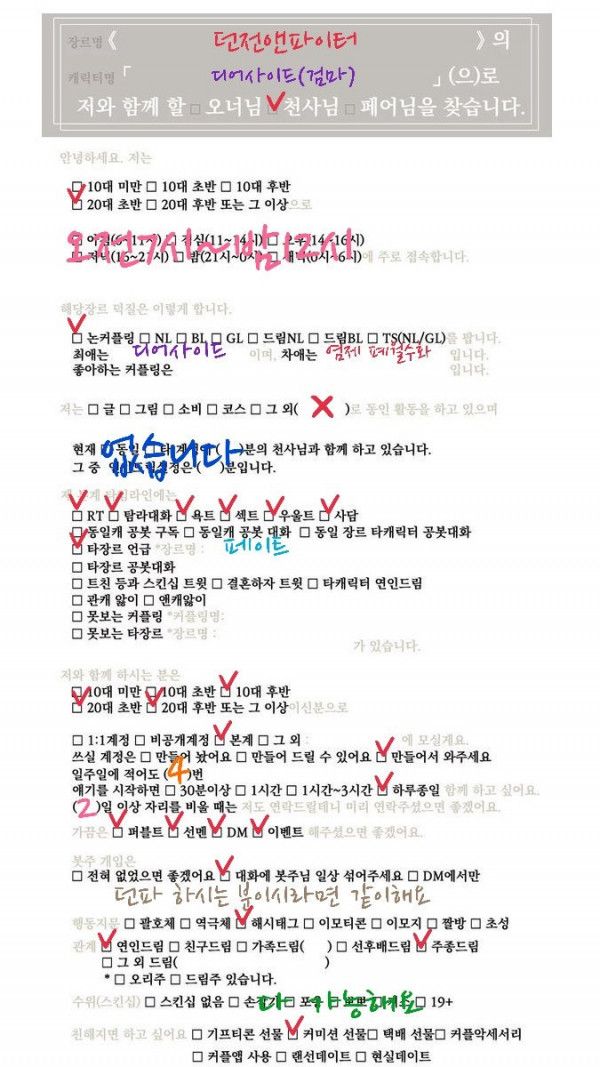 장르명 《 던전앤파이터 》의
캐릭터명 「 디어사이트(검마) 」(으)로
저와 함께 할 □ 오너님 ☑ 천사님 □ 페어님을 찾습니다.
안녕하세요. 저는
☑ 10대 미만 □ 10대 초반 □ 10대 후반
☑ 20대 초반 □ 20대 후반 또는 그 이상으로
오전7시~밤12시
□ 아침(6~11시) □ 점심(11~14시) □ 오후(14~16시)
□ 저녁(16~21시) □ 밤(21시~0시) □ 새벽(0시~6시)에 주로 접속합니다.
해당장르 덕질은 이렇게 합니다.
☑ 논커플링 □ NL □ BL □ GL □ 드림NL □ 드림BL □ TS(NL/GL)를 팝니다.
최애는 디어사이트 이며, 차애는 염제 폐월수화 입니다.
좋아하는 커플링은 입니다.
저는 □ 글 □ 그림 □ 소비 □ 코스 □ 그 외( X )로 동인 활동을 하고 있으며
없습니다
현재 □ 동일 □ 타 ( )분의 천사님과 함께 하고 있습니다.
그 중 연인드림설정은 ( )분입니다.
제 본계 타임라인에는
☑ RT ☑ 탐라대화 ☑ 욕트 ☑ 섹트 ☑ 우울트 ☑ 사담
□ 동일캐 공봇 구독 □ 동일캐 공봇 대화 □ 동일 장르 타캐릭터 공봇대화
☑ 타장르 언급 *장르명 : 페이트
□ 타장르 공봇대화
□ 트친 등과 스킨십 트윗 □ 결혼하자 트윗 □ 타캐릭터 연인드림
□ 관캐 앓이 □ 앤캐앓이
□ 못보는 커플링 *커플링명:
□ 못보는 타장르 *장르명 :
가 있습니다.
저와 함께 하시는 분은
☑ 10대 미만 ☑ 10대 초반 ☑ 10대 후반
☑ 20대 초반 ☑ 20대 후반 또는 그 이상이신분으로
□ 1:1계정 □ 비공개계정 ☑ 본계 □ 그 외 : 에 모실게요.
쓰실 계정은 □ 만들어 놨어요 □ 만들어 드릴 수 있어요 ☑ 만들어서 와주세요
일주일에 적어도 (4)번
얘기를 시작하면 □ 30분이상 □ 1시간 □ 1시간~3시간 ☑ 하루종일 함께 하고 싶어요.
(2)일 이상 자리를 비울 때는 저도 연락드릴테니 미리 연락주셨으면 좋겠어요.
가끔은 ☑ 퍼블트 ☑ 선멘 ☑ DM ☑ 이벤트 해주셨으면 좋겠어요.
봇주 개입은
□ 전혀 없었으면 좋겠어요 ☑ 대화에 봇주님 일상 섞어주세요 □ DM에서만
던파 하시는 분이시라면 같이해요
행동지문 □ 괄호체 □ 역극체 ☑ 해시태그 □ 이모티콘 □ 이모지 □ 짤방 □ 초성
관계 ☑ 연인드림 □ 친구드림 □ 가족드림( ) □ 선후배드림 ☑ 주종드림
□ 그 외 드림( )
* □ 오리주 □ 드림주 있습니다.
수위(스킨십) □ 스킨십 없음 □ 손잡기 □ 포옹 □ 뽀뽀 □ 키스 □ 19+
다 가능해요
친해지면 하고 싶어요 □ 기프티콘 선물 ☑ 커미션 선물 □ 택배 선물 □ 커플악세서리
□ 커플앱 사용 □ 랜선데이트 □ 현실데이트